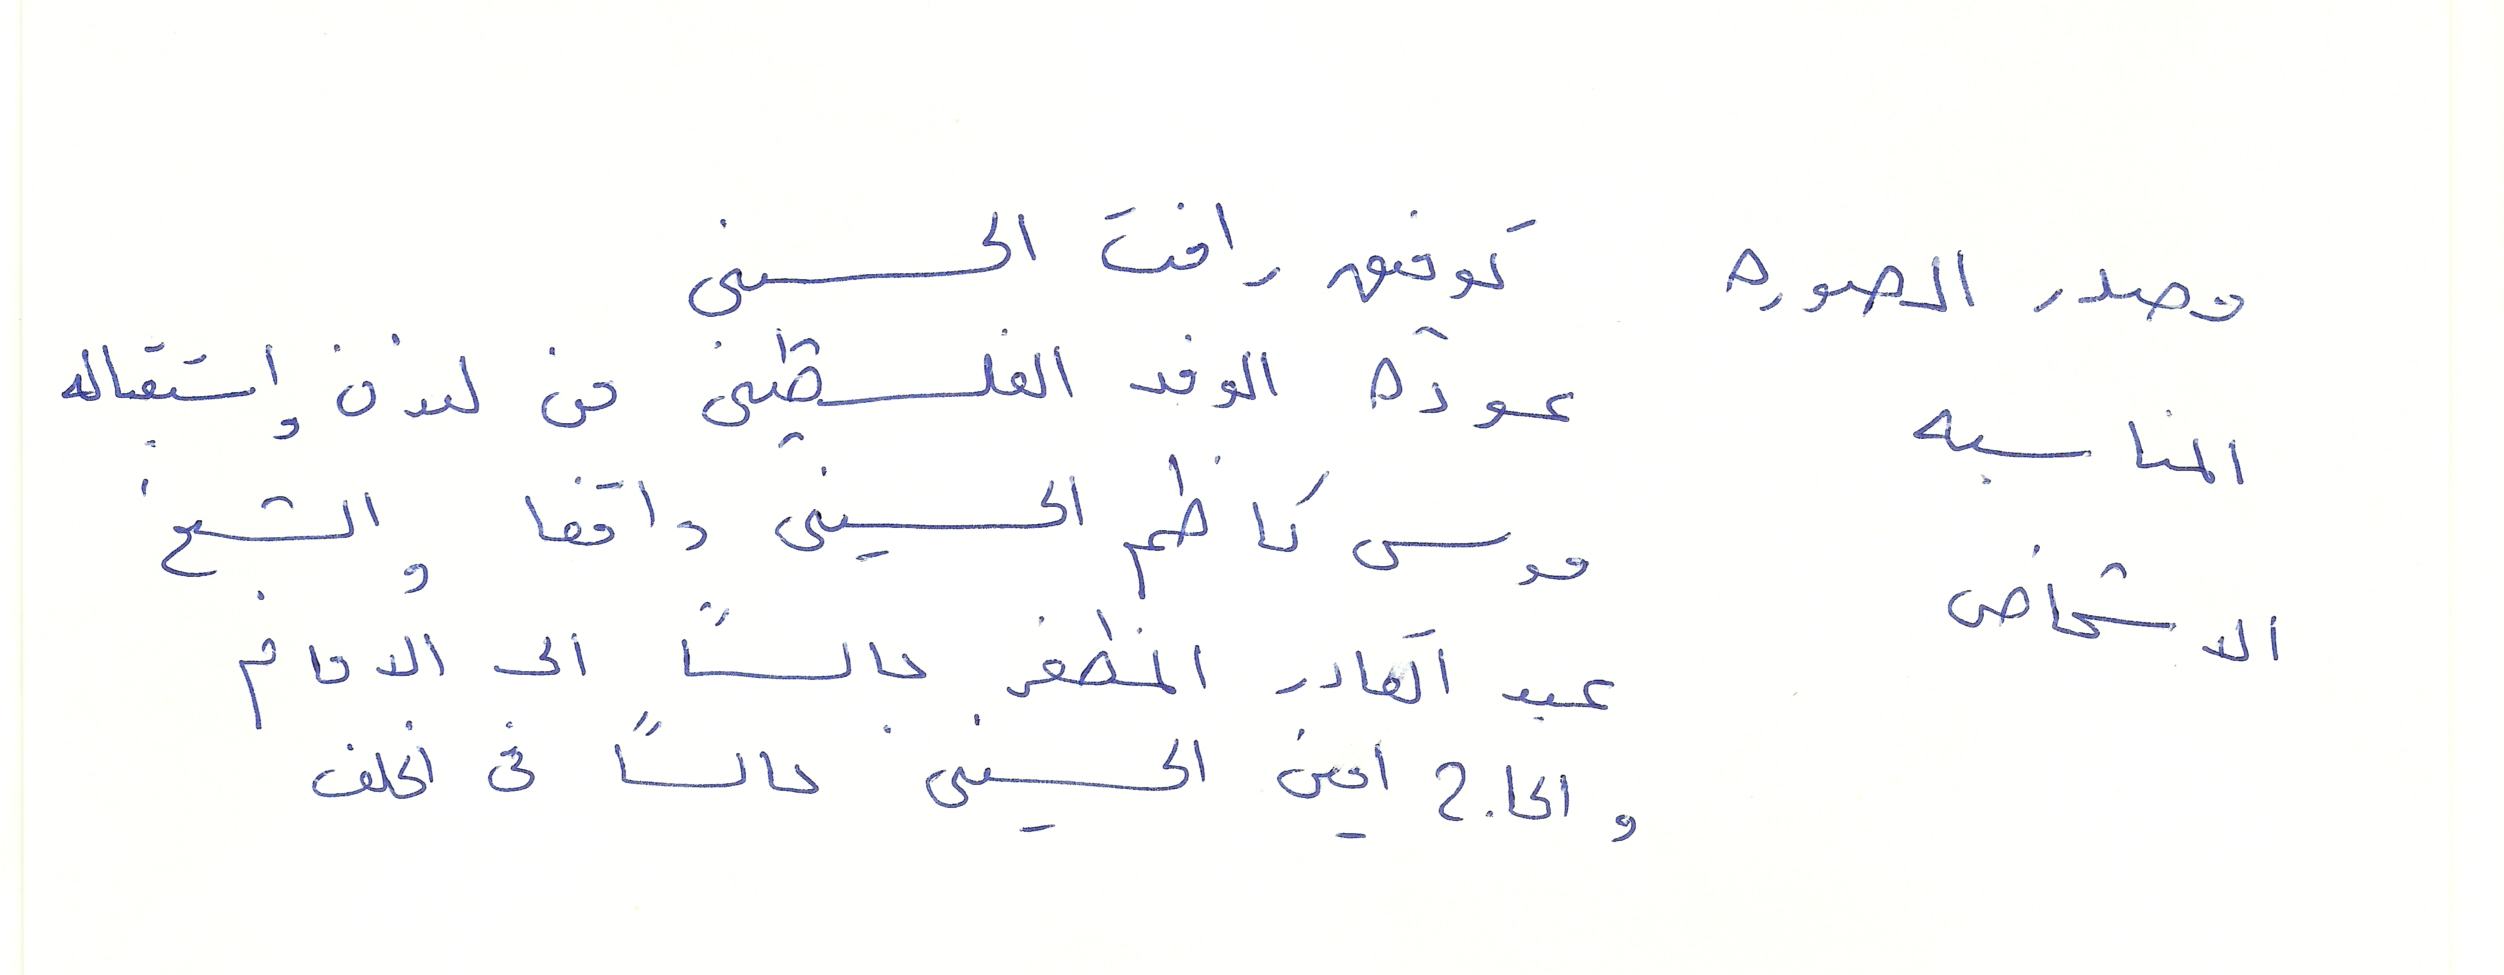 مصدر الصوره توفيه رافت الحسيني
المناسبه عودة الوفد الفلسطيني من لندن واستقباله
الاشخاص موسى كاظم الحسيني واقفا والشيخ
عبد القادر المظفر جالسًا الى الامام
والحاج امين الحسيني جالسًا في الخلف